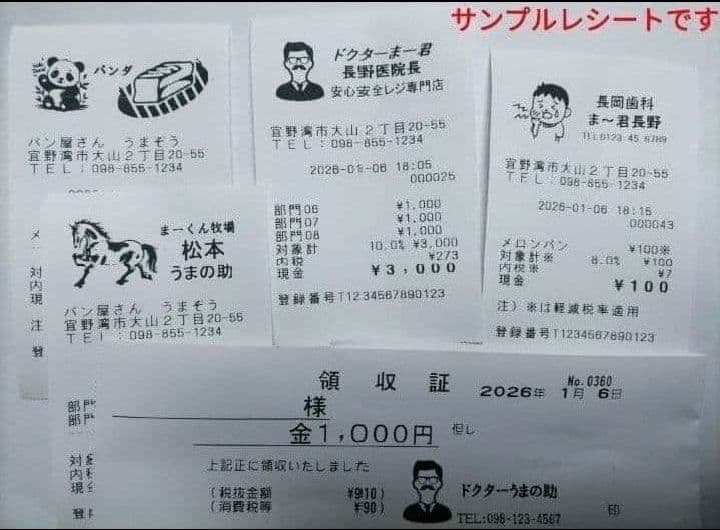 サンプルレシートです
パンダ
パン屋さん うまぞう
宜野湾市大山2丁目20-55
TEL:098-855-1234
ドクターまー君
長野医院長
安心安全レジ専門店
宜野湾市大山2丁目20-55
TEL:098-855-1234
2026-01-06 18:05
000025
部門06 ¥1,000
部門07 ¥1,000
部門08 ¥1,000
対象計 10.0% ¥3,000
内税 ¥273
現金 ¥3,000
登録番号T1234567890123
長岡歯科
ま~君長野
TEL0123-45-6789
宜野湾市大山2丁目20-55
TEL:098-855-1234
2026-01-06 18:15
000043
メロンパン ¥100※
対象計※ 8.0% ¥100
内税※ ¥7
現金 ¥100
注)※は軽減税率適用
登録番号T1234567890123
メ
対
内
現
注
登
まーくん牧場
松本
うまの助
パン屋さん うまぞう
宜野湾市大山2丁目20-55
TEL:098-855-1234
部門
部門
対象
内税
現金
登録
領収証
No.0360
2026年 1月 6日
様
金1,000円 但し
上記正に領収いたしました
(税抜金額 ¥910)
(消費税等 ¥90)
ドクターうまの助
TEL:098-123-4567
印